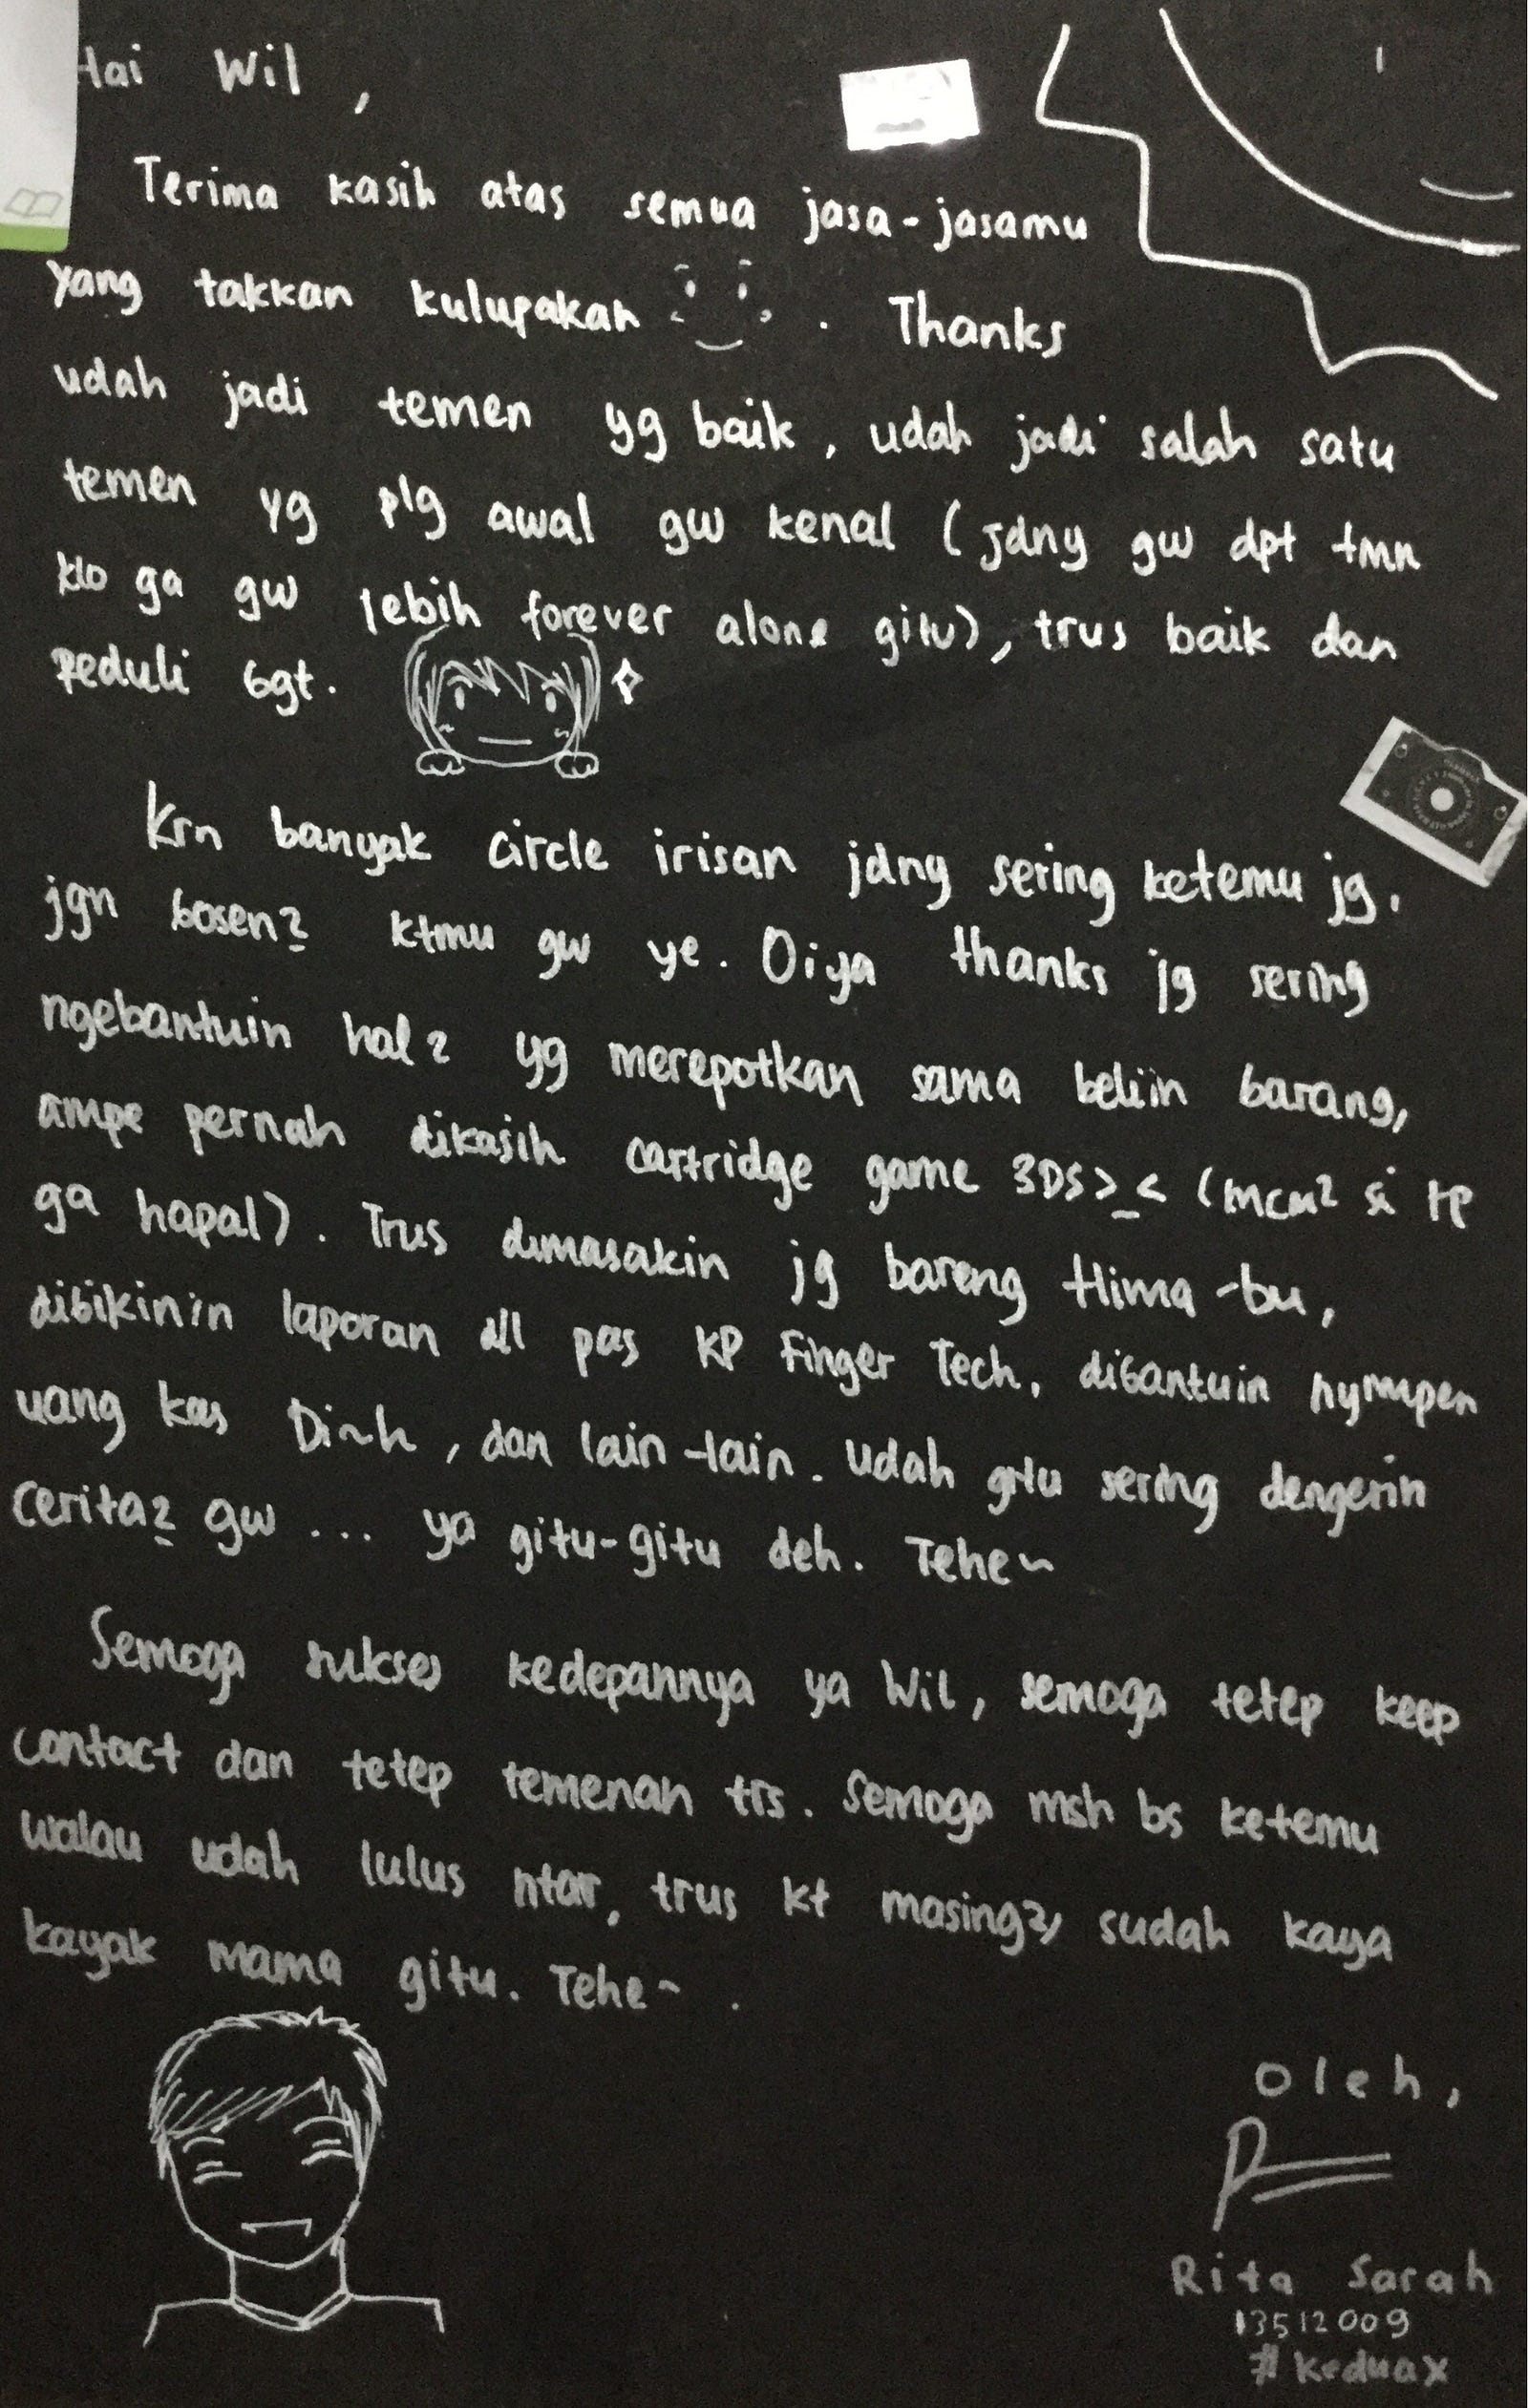 Hai Wil,
Terima kasih atas semua jasa-jasamu
yang takkan kulupakan . Thanks
udah jadi temen yg baik, udah jadi salah satu
temen yg plg awal gw kenal (jdny gw dpt tmn
klo ga gw lebih forever alone gitu), trus baik dan
peduli bgt.
Krn banyak circle irisan jdny sering ketemu jg.
jgn bosen2 ktmu gw ye. Oiya thanks jg sering
ngebantuin hal2 yg merepotkan sama beliin barang,
ampe pernah dikasih cartridge game 3DS >_< (mcm2 si tp
ga hapal). Trus dimasakin jg bareng Hima-bu,
dibikinin laporan dll pas KP Finger Tech, dibantuin nyimpen
uang kas, dan lain-lain. Udah gitu sering dengerin
cerita2 gw ... ya gitu-gitu deh. Tehe~
Semoga sukses kedepannya ya Wil, semoga tetep keep
contact dan tetep temenan trs. Semoga msh bs ketemu
walau udah lulus ntar, trus kt masing2 sudah kaya
kayak mama gitu. Tehe~ .
oleh,
Rita Sarah
13512009
#keduax